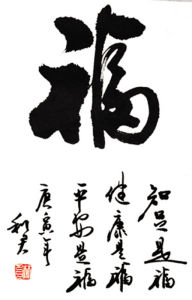 福
知足是福
健康是福
平安是福
庚寅年